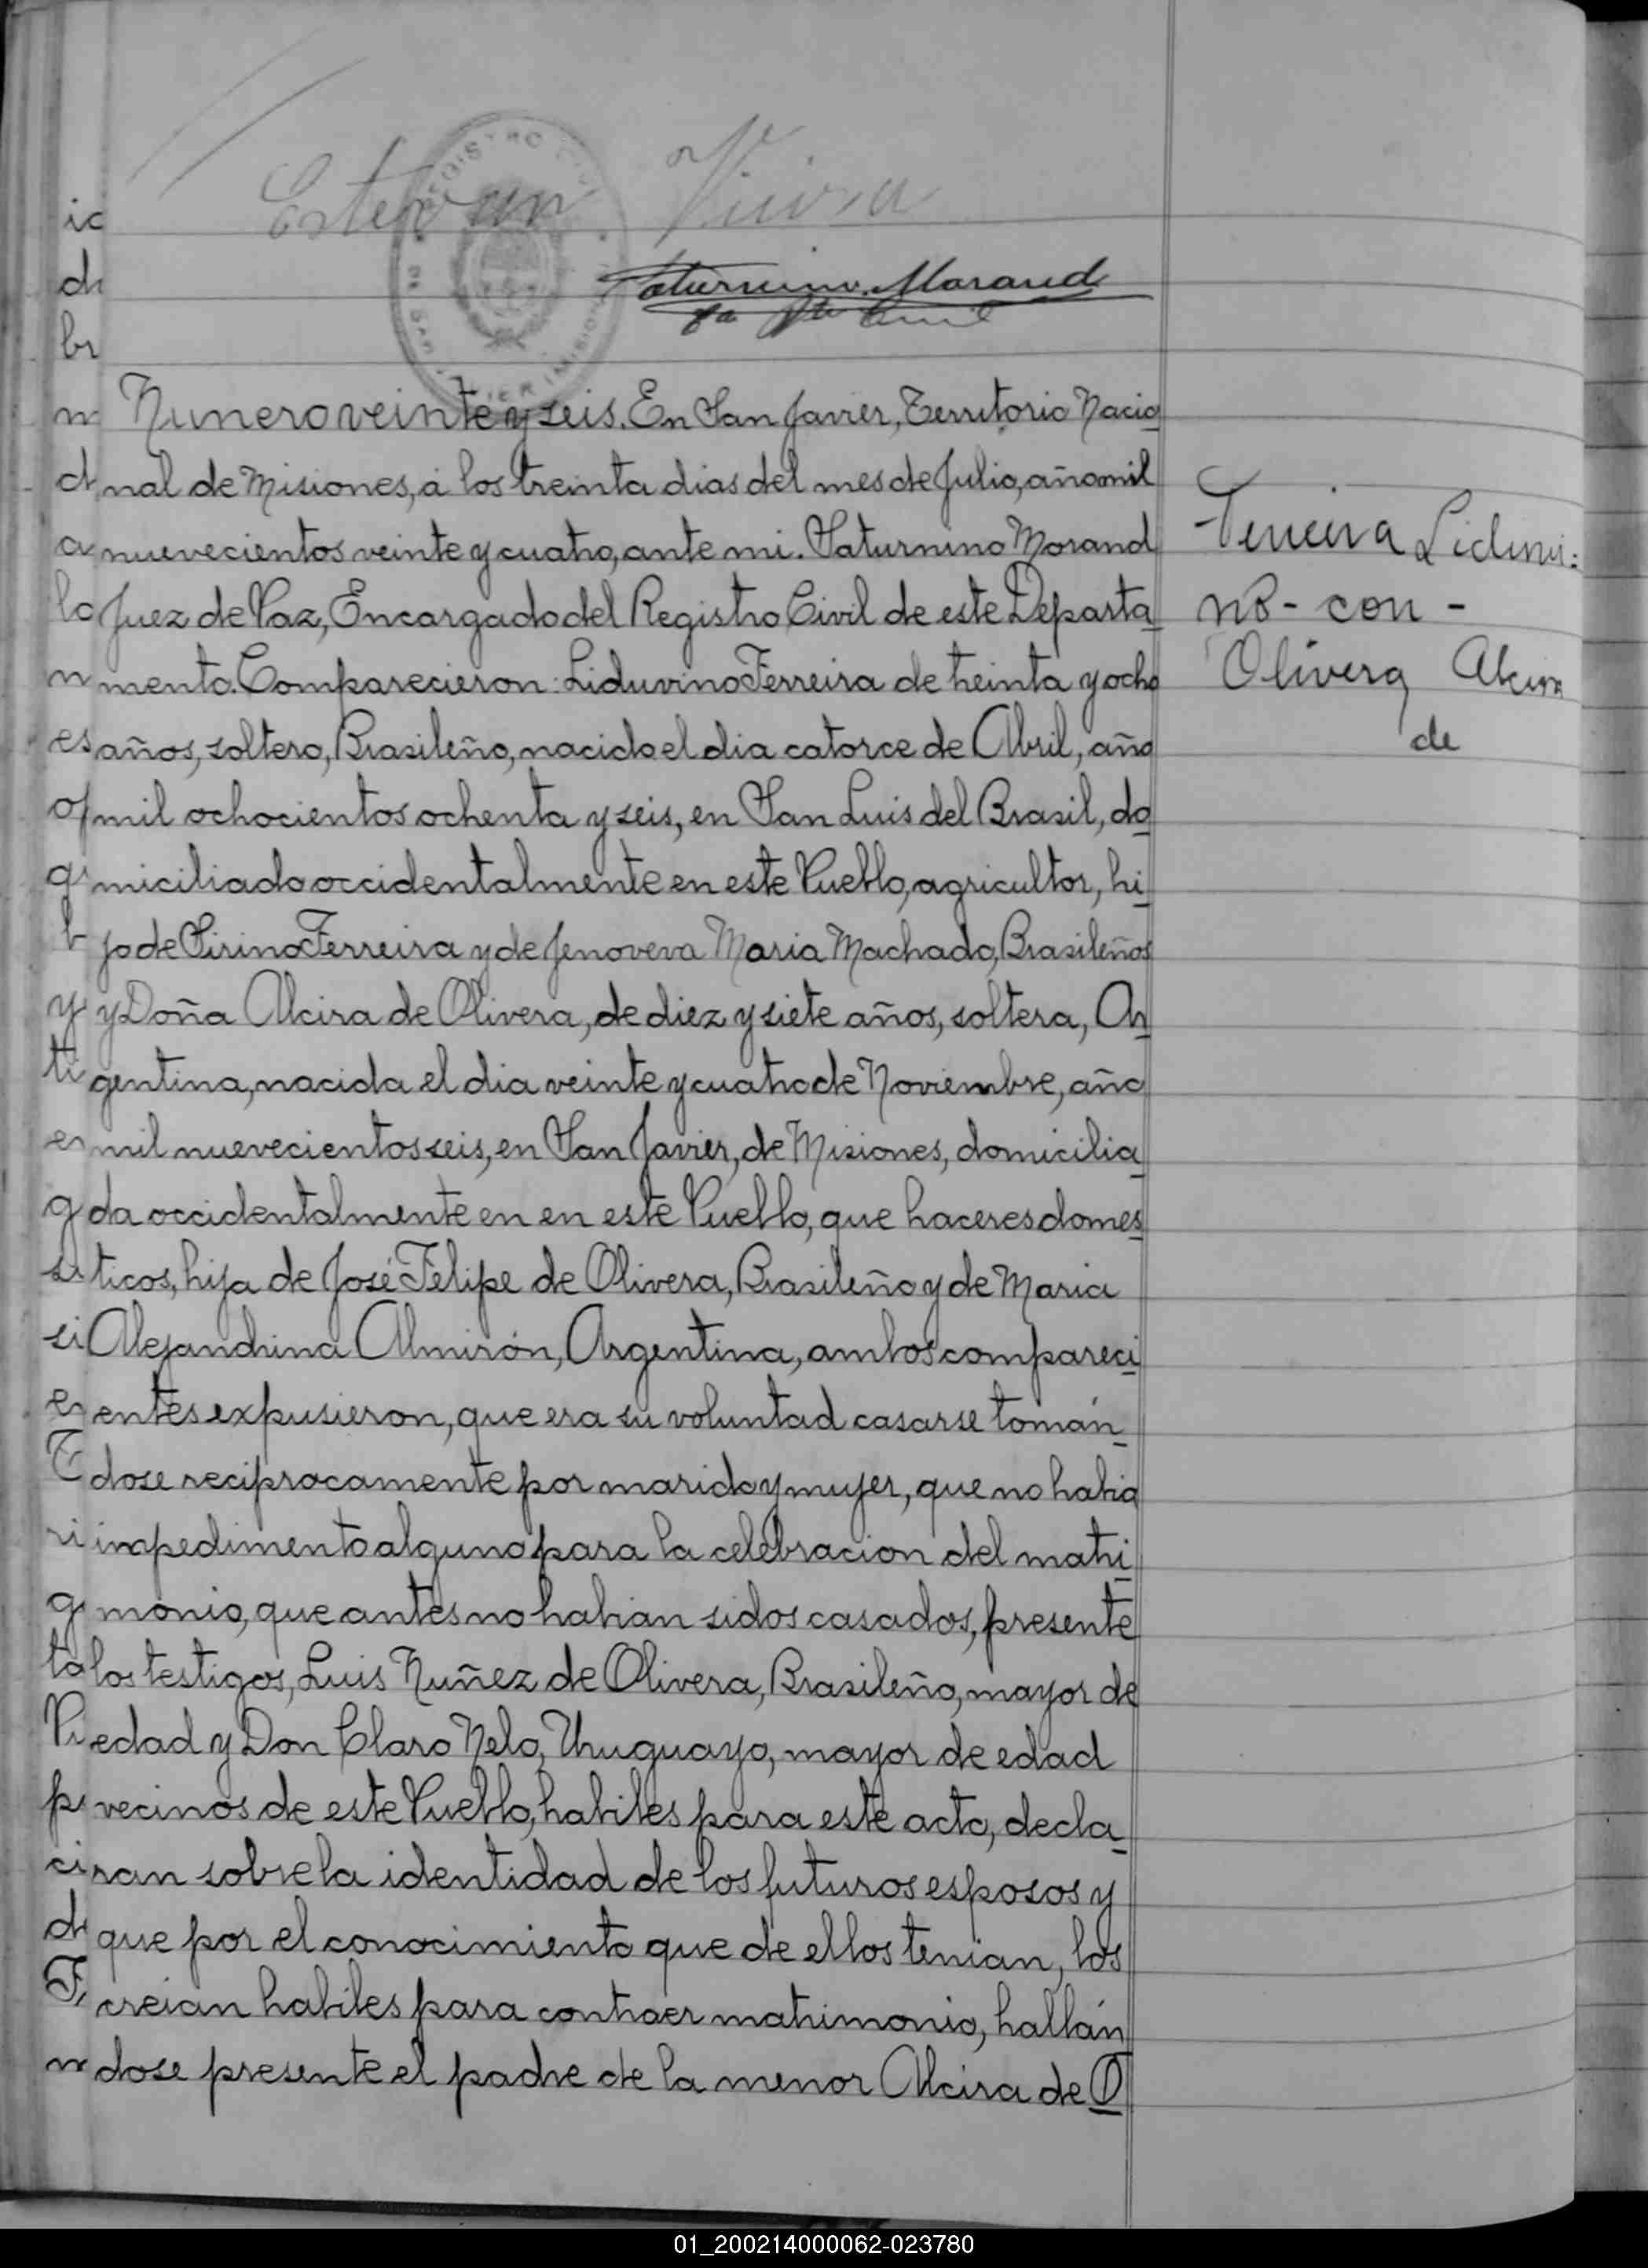 Estevan Vieira
Saturnino Morand
Numero veinte y seis. En San Javier, Territorio Nacio
nal de Misiones, á los treinta dias del mes de Julio, año mil
nuevecientos veinte y cuatro, ante mi. Saturnino Morand
Juez de Paz, Encargado del Registro Civil de este Departa
mento. Comparecieron: Liduvino Ferreira de treinta y ocho
años, soltero, Brasileño, nacido el dia catorce de Abril, año
mil ochocientos ochenta y seis, en San Luis del Brasil, do
miciliado occidentalmente en este Pueblo, agricultor, hi
jo de Pirino Ferreira y de Jenoveva Maria Machado, Brasileños
y Doña Alcira de Olivera, de diez y siete años, soltera, Ar
gentina, nacida el dia veinte y cuatro de Noviembre, año
mil nuevecientos seis, en San Javier, de Misiones, domicilia
da occidentalmente en en este Pueblo, que haceres domes
ticos, hija de José Felipe de Olivera, Brasileño y de Maria
Alejandrina Almirón, Argentina, ambos compareci
entes expusieron, que era su voluntad casarse tomán
dose reciprocamente por marido y mujer, que no habia
impedimento alguno para la celebracion del matri
monio, que antes no habian sidos casados, presente
los testigos, Luis Nuñez de Olivera, Brasileño, mayor de
edad y Don Claro Nelo, Uruguayo, mayor de edad
vecinos de este Pueblo, habiles para este acto, decla
ran sobre la identidad de los futuros esposos y
que por el conocimiento que de ellos tenian, los
creian habiles para contraer matrimonio, hallán
dose presente el padre de la menor Alcira de O
no - con -
Olivera Alcira
de
01_200214000062-023780